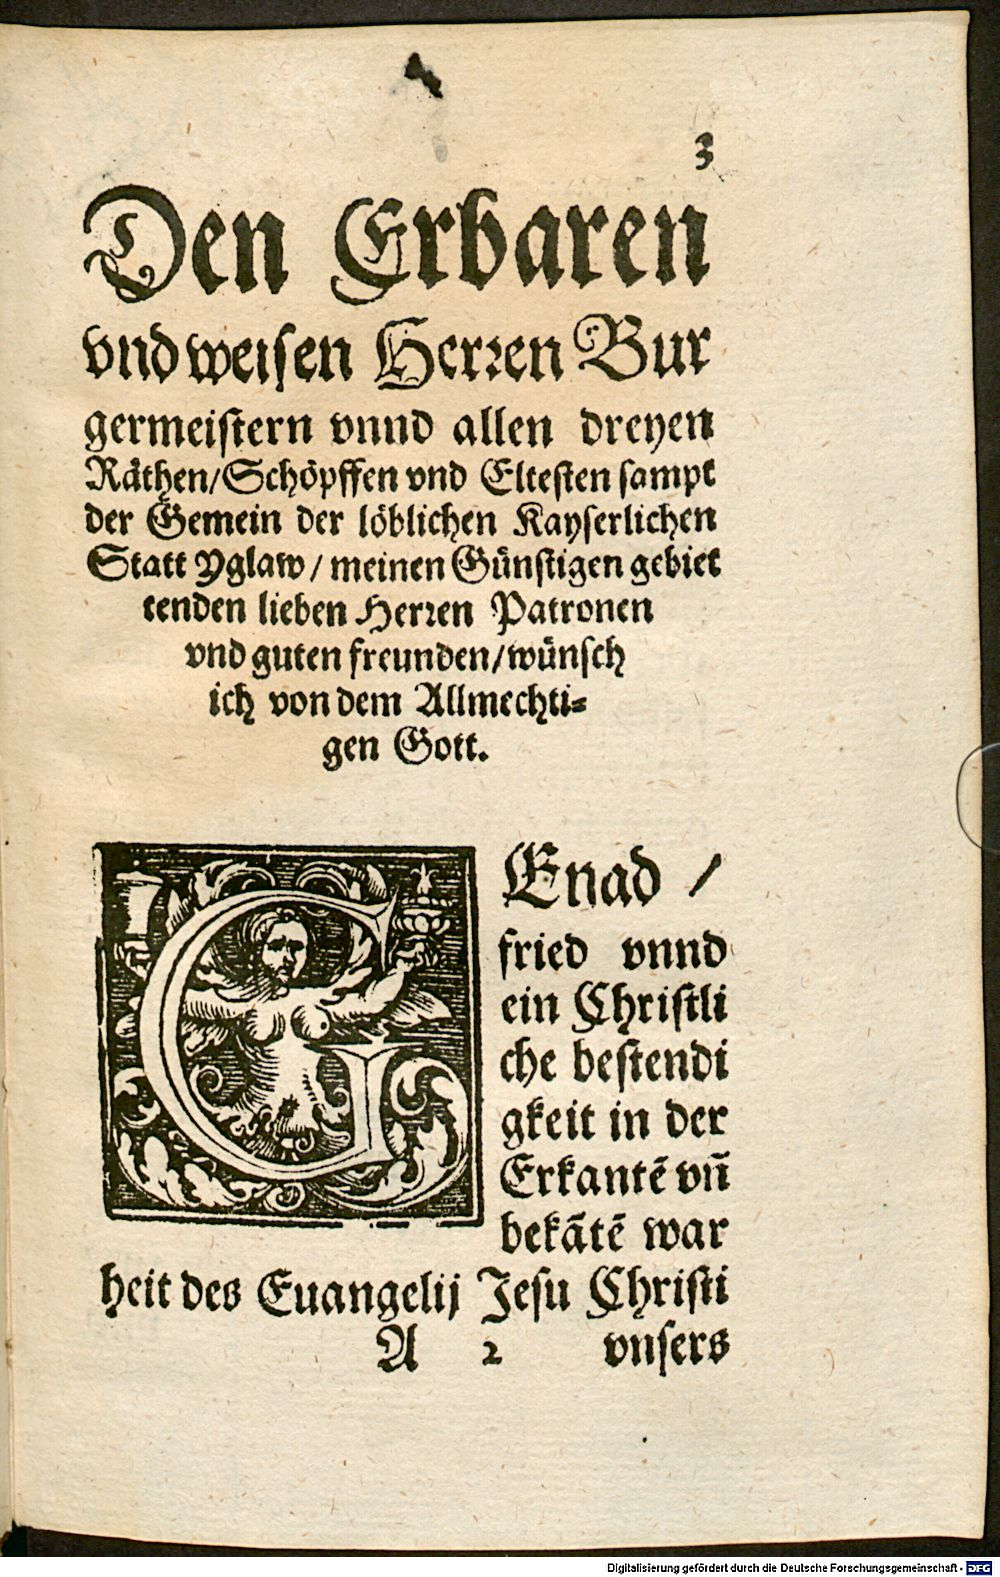 3
Den Erbaren
vnd weisen Herren Bur
germeistern vnnd allen dreyen
Räthen/Schöpffen vnd Eltesten sampt
der Gemein der löblichen Kayserlichen
Statt Yglaw / meinen Günstigen gebiet
tenden lieben Herren Patronen
vnd guten freunden/wünsch
ich von dem Allmechti-
gen Gott.
GEnad /
fried vnnd
ein Christli
che bestendi
gkeit in der
Erkantē vñ
bekātē war
heit des Euangelij Jesu Christi
A 2 vnsers
Digitalisierung gefördert durch die Deutsche Forschungsgemeinschaft - DFG